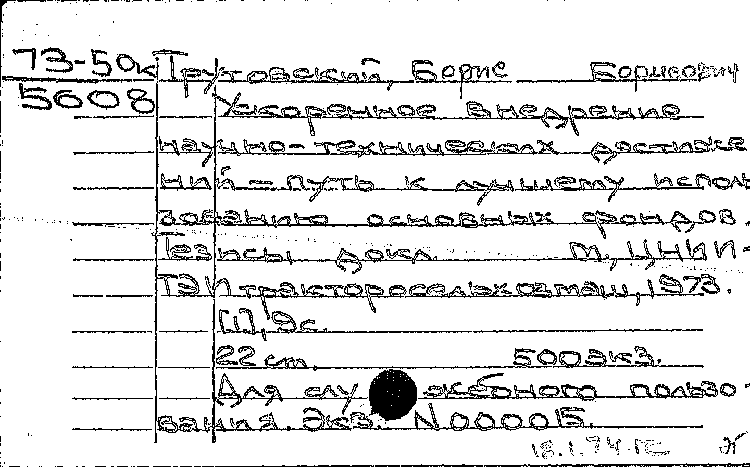 73-50к Трутовский, Борис Борисович
5608 Ускоренное внедрение
научно-технических достиже
ний - путь к лучшему исполь
зованию основных фондов.
Тезисы докл. М., ЦНИИ-
ТЭИтракторосельхозмаш, 1973.
[1], 9с.
22 см. 500экз.
Для служебного пользо-
вания. Экз. N 00001Б.
18.1.74.